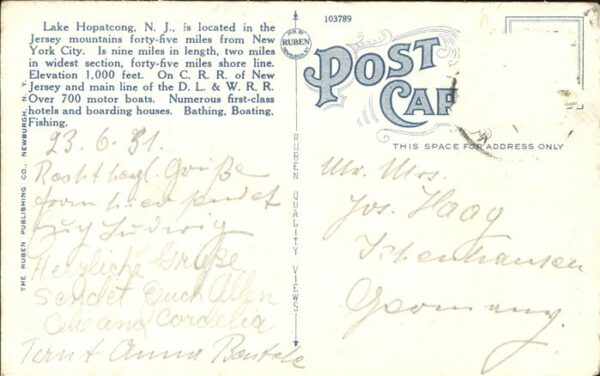 Lake Hopatcong, N. J., is located in the
Jersey mountains forty-five miles from New
York City. Is nine miles in length, two miles
in widest section, forty-five miles shore line.
Elevation 1,000 feet. On C. R. R. of New
Jersey and main line of the D. L. & W. R. R.
Over 700 motor boats. Numerous first-class
hotels and boarding houses. Bathing, Boating,
Fishing.
23. 6. 31.
Recht herzl. Grüße
from hier sendet
Ludwig
Herzliche Grüße
sendet Euch Allen
and Cordelia
Anna
THE RUBEN PUBLISHING CO., NEWBURGH, N. Y.
RUBEN
RUBEN QUALITY VIEWS
103789
POST
CAR
THIS SPACE FOR ADDRESS ONLY
Mr. Mrs.
Jos. Haag
Ichenhausen
Germany.